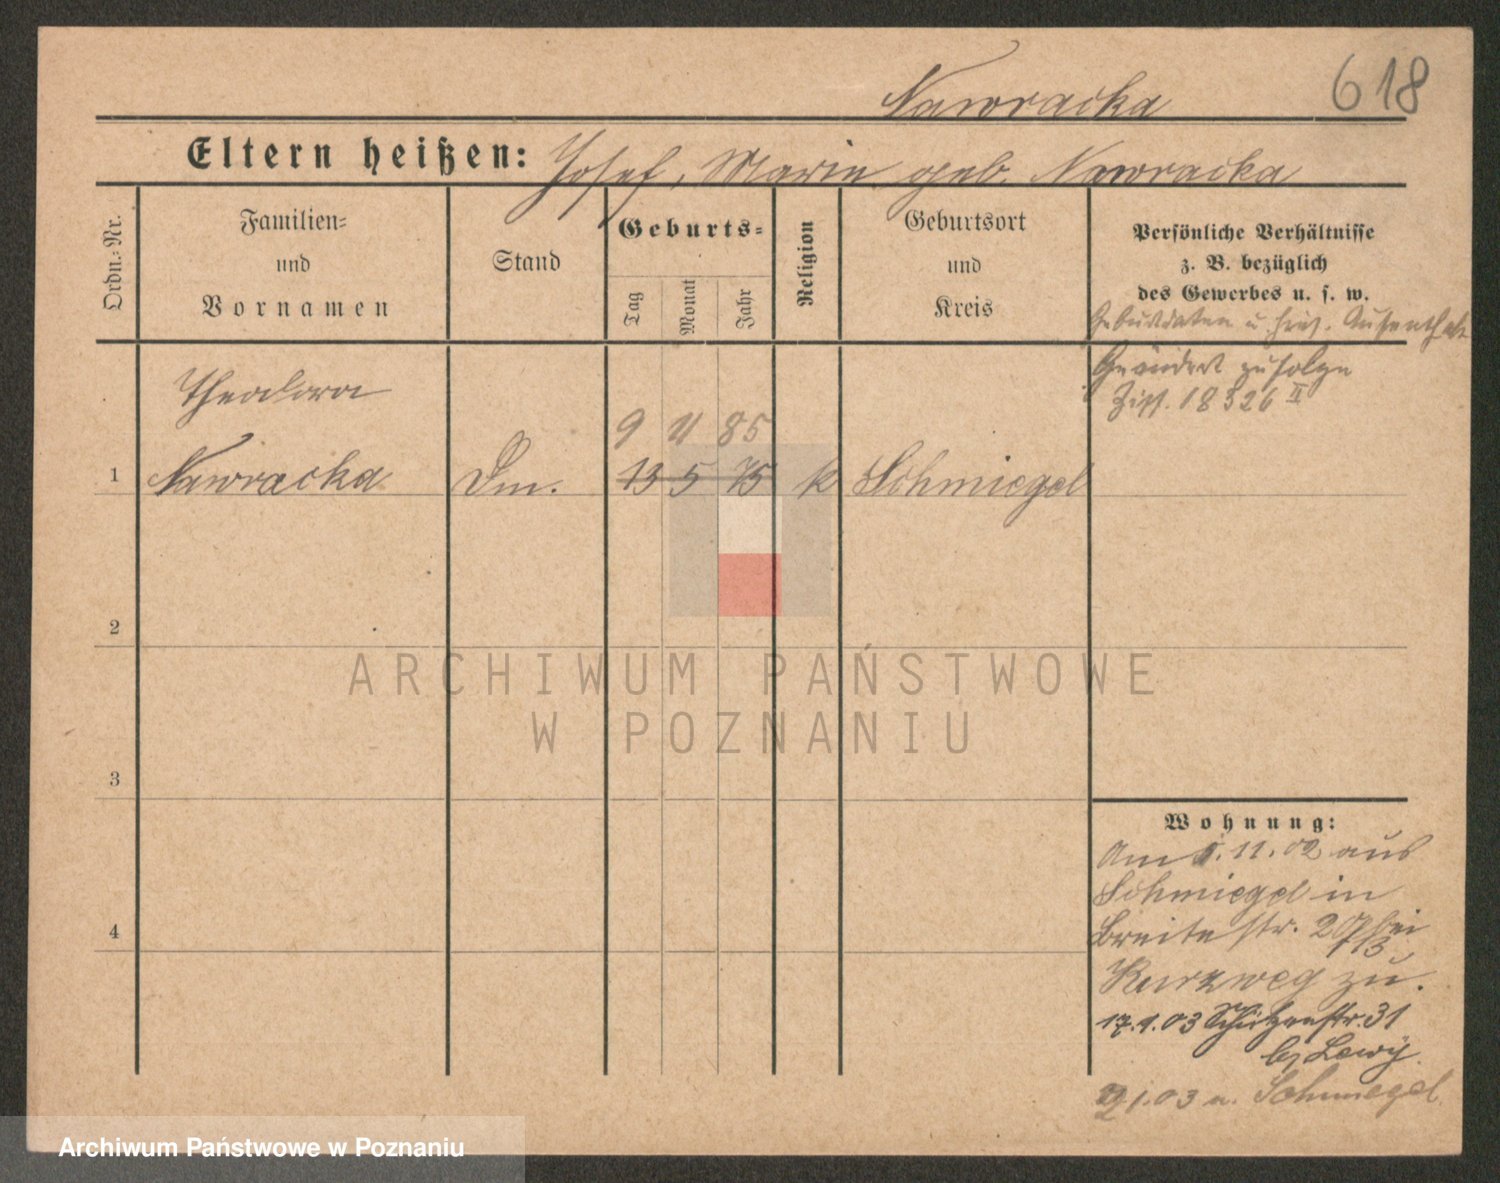 Nawracka
618
Eltern heißen: Josef, Marie geb. Nawracka
Ordn.-Nr.
Familien-
und
Vornamen
Stand
Geburts-
Tag
Monat
Jahr
Religion
Geburtsort
und
Kreis
Persönliche Verhältnisse
z. B. bezüglich
des Gewerbes u. s. w.
Geburtsdaten u. Aufenthalt
Geändert zufolge
18326 II
Theodora
9 11 85
1 Nawracka Dm. 13 5 75 k Schmiegel
2
3
4
Wohnung:
Am 1.11.02 aus
Schmiegel in
Breitestr. 20/13 bei
Kurzweg zu.
17.1.03 Schützenstr. 31
b/ Lewy.
1.03 n. Schmiegel
ARCHIWUM PAŃSTWOWE
W POZNANIU
Archiwum Państwowe w Poznaniu